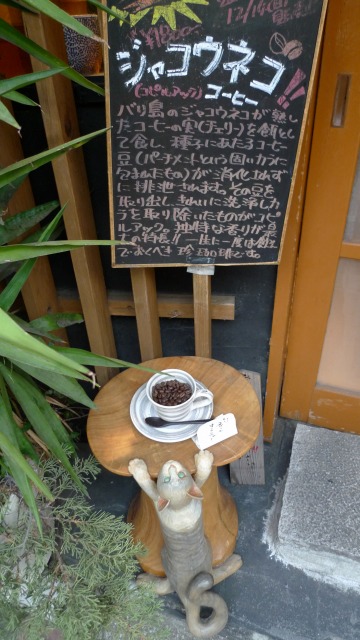 12/14(日)
ジャコウネコ
(コピルアック) コーヒー!!
バリ島のジャコウネコが熟し
たコーヒーの実(チェリー)を餌とし
て食し、種子にあたるコーヒー
豆(パーチメントという固いカラに
包まれたもの)が消化されず
に排泄されます。その豆を
取り出し、きれいに洗浄しカ
ラを取り除いたものがコピ
ルアック。独特な香りが最
大の特長!!一生に一度は飲ん
でおくべき珍しい